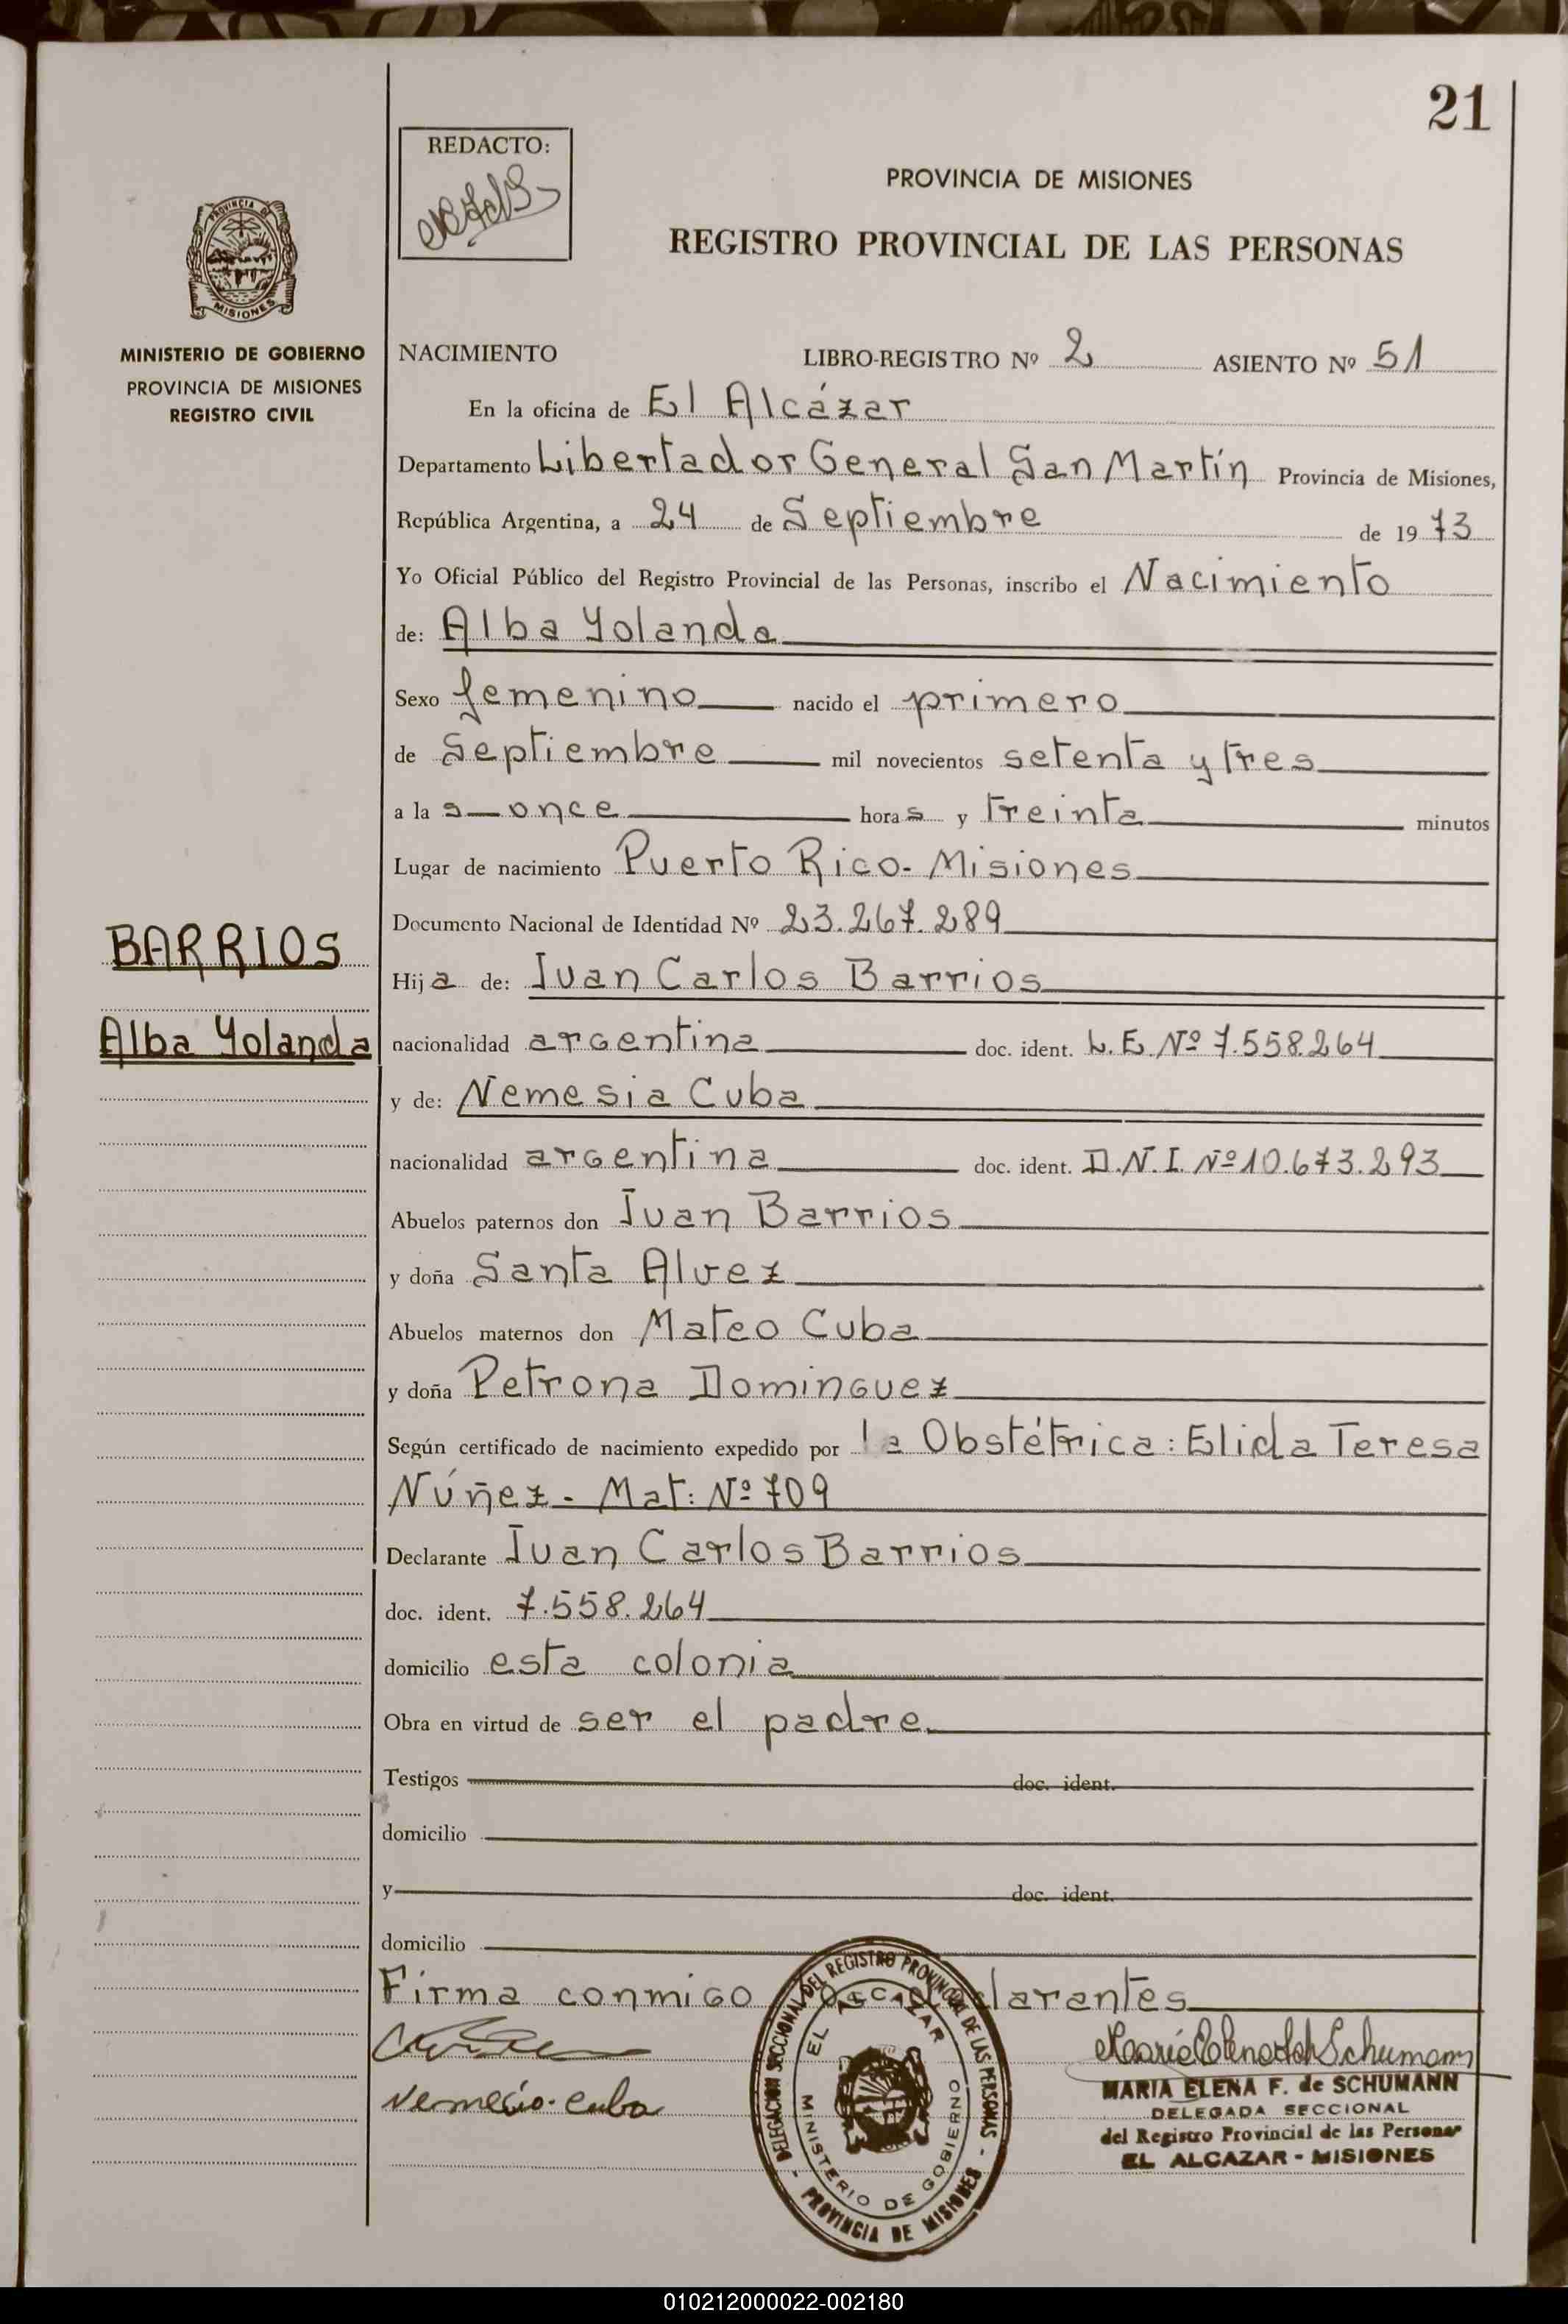 21
REDACTO:
PROVINCIA DE MISIONES
REGISTRO PROVINCIAL DE LAS PERSONAS
PROVINCIA DE
MISIONES
MINISTERIO DE GOBIERNO
PROVINCIA DE MISIONES
REGISTRO CIVIL
NACIMIENTO LIBRO-REGISTRO Nº 2 ASIENTO Nº 51
En la oficina de El Alcázar
Departamento Libertador General San Martín Provincia de Misiones,
República Argentina, a 24 de Septiembre de 1973
Yo Oficial Público del Registro Provincial de las Personas, inscribo el Nacimiento
de: Alba Yolanda
Sexo femenino nacido el primero
de Septiembre mil novecientos setenta y tres
a la s once horas y treinta minutos
Lugar de nacimiento Puerto Rico - Misiones
Documento Nacional de Identidad Nº 23.267.289
BARRIOS
Hija de: Juan Carlos Barrios
Alba Yolanda
nacionalidad argentina doc. ident. L.E. Nº 7.558.264
y de: Nemesia Cuba
nacionalidad argentina doc. ident. D.N.I. Nº 10.673.293
Abuelos paternos don Juan Barrios
y doña Santa Alvez
Abuelos maternos don Mateo Cuba
y doña Petrona Dominguez
Según certificado de nacimiento expedido por la Obstétrica: Elida Teresa
Núñez - Mat: Nº 709
Declarante Juan Carlos Barrios
doc. ident. 7.558.264
domicilio esta colonia
Obra en virtud de ser el padre
Testigos doc. ident.
domicilio
y doc. ident.
domicilio
Firma conmigo declarantes
Nemecio Cuba
DELEGACION SECCIONAL DEL REGISTRO PROVINCIAL DE LAS PERSONAS - PROVINCIA DE MISIONES -
EL ALCAZAR
MINISTERIO DE GOBIERNO
María Elena F de Schumann
MARIA ELENA F. de SCHUMANN
DELEGADA SECCIONAL
del Registro Provincial de las Personas
EL ALCAZAR - MISIONES
010212000022-002180